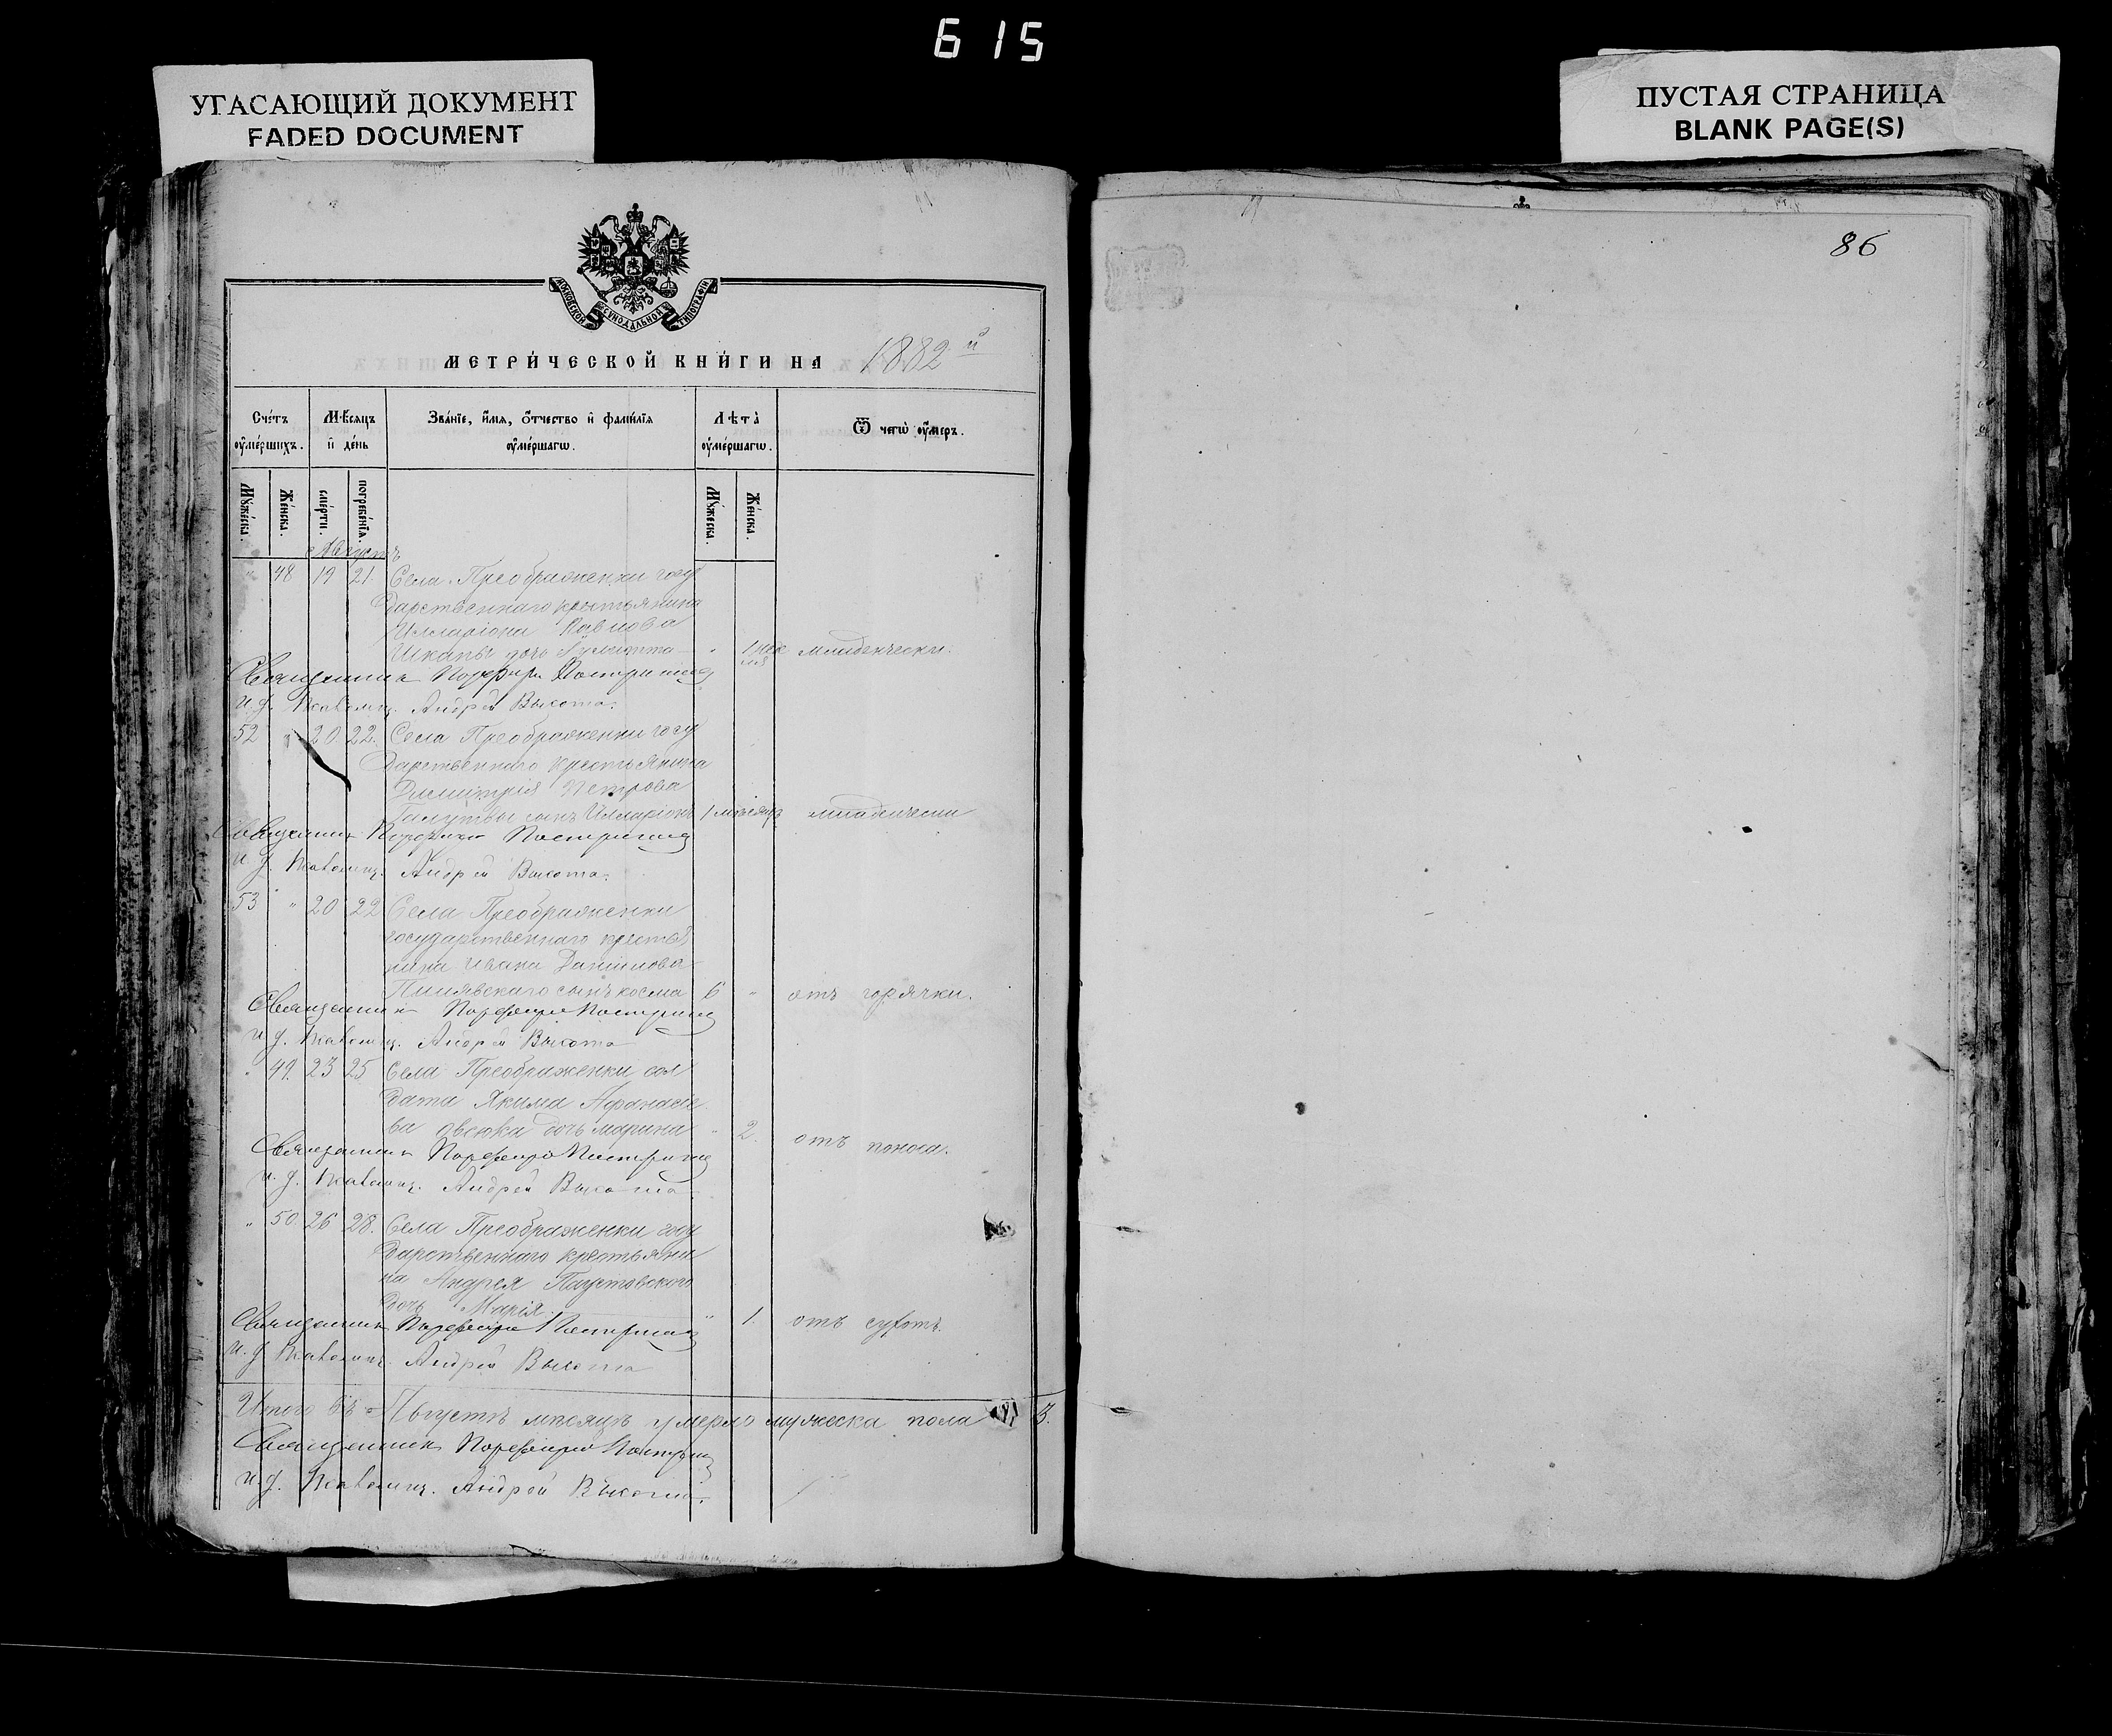 615
УГАСАЮЩИЙ ДОКУМЕНТ
FADED DOCUMENT
ПУСТАЯ СТРАНИЦА
BLANK PAGE(S)
86
МОСКОВСКОЙ СУНОДАЛЬНОЙ ТИПОГРАФІИ
МЕТРИ́ЧЕСКОЙ КНИ́ГИ НА 1882 й
Сче́тъ ᲂу҆ме́ршихъ.
Мѣ́сяцъ и҆ де́нь
Зва́нїе, и҆́мя, ѻ҆́тчество и҆ фами́лїя ᲂу҆ме́ршагѡ.
Лѣ́та ᲂу҆ме́ршагѡ.
Ѿ чегѡ̀ ᲂу҆́меръ.
Мꙋ́жеска.
Же́нска.
сме́рти.
погребе́нїѧ.
Мꙋ́жеска.
Же́нска.
Августъ
" 48 19 21. Села Преображенки госу
дарственнаго крестьянина
Илларіона Павлова
Шкапы дочь " 1 неде
ля младенчески.
Священник Порфирий
И. д. Псаломщ. Андрей Высота.
52 " 20 22. Села Преображенки госу
дарственнаго крестьянина
Димитрія Петрова
сынъ Илларіонъ 1 мѣсяцъ младенчески
Священник Порфирий
И. д. Псаломщ. Андрей Высота.
53 " 20 22 Села Преображенки
государственнаго крестья
нина Ивана Данилова
сынъ Косма 6 " отъ горячки.
Священник Порфирий
И. д. Псаломщ. Андрей Высота
" 49. 23 25 Села Преображенки сол
дата Якима Афанасье
ва Овсюка дочь Марина " 2. отъ поноса.
Священник Порфирий
И. д. Псаломщ. Андрей Высота
" 50. 26 28. Села Преображенки госу
дарственнаго крестьяни
на Андрея Паустовского
дочь Марія. " 1. отъ сухотъ.
Священник Порфирий
И. д. Псаломщ. Андрей Высота
Итого въ Августѣ мѣсяцѣ умерло мужеска пола 3.
Священник Порфирий
И. д. Псаломщ. Андрей Высота.